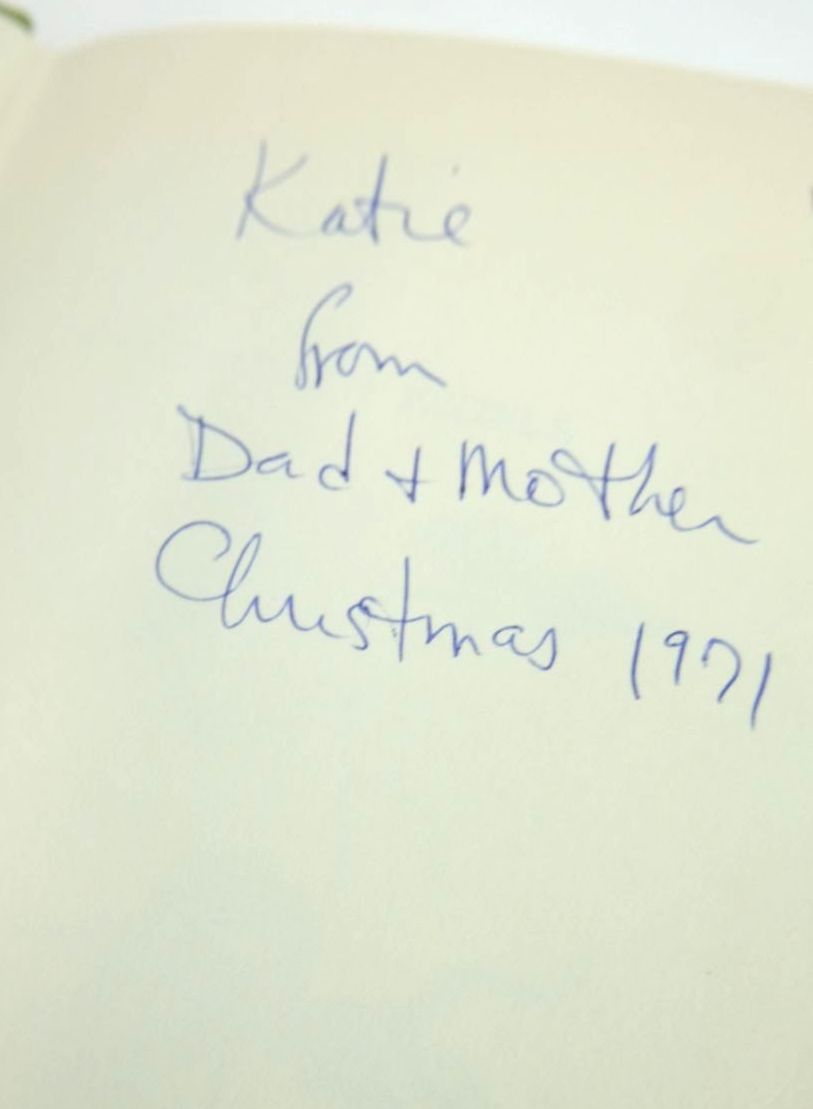 Katie
from
Dad + Mother
Christmas 1971